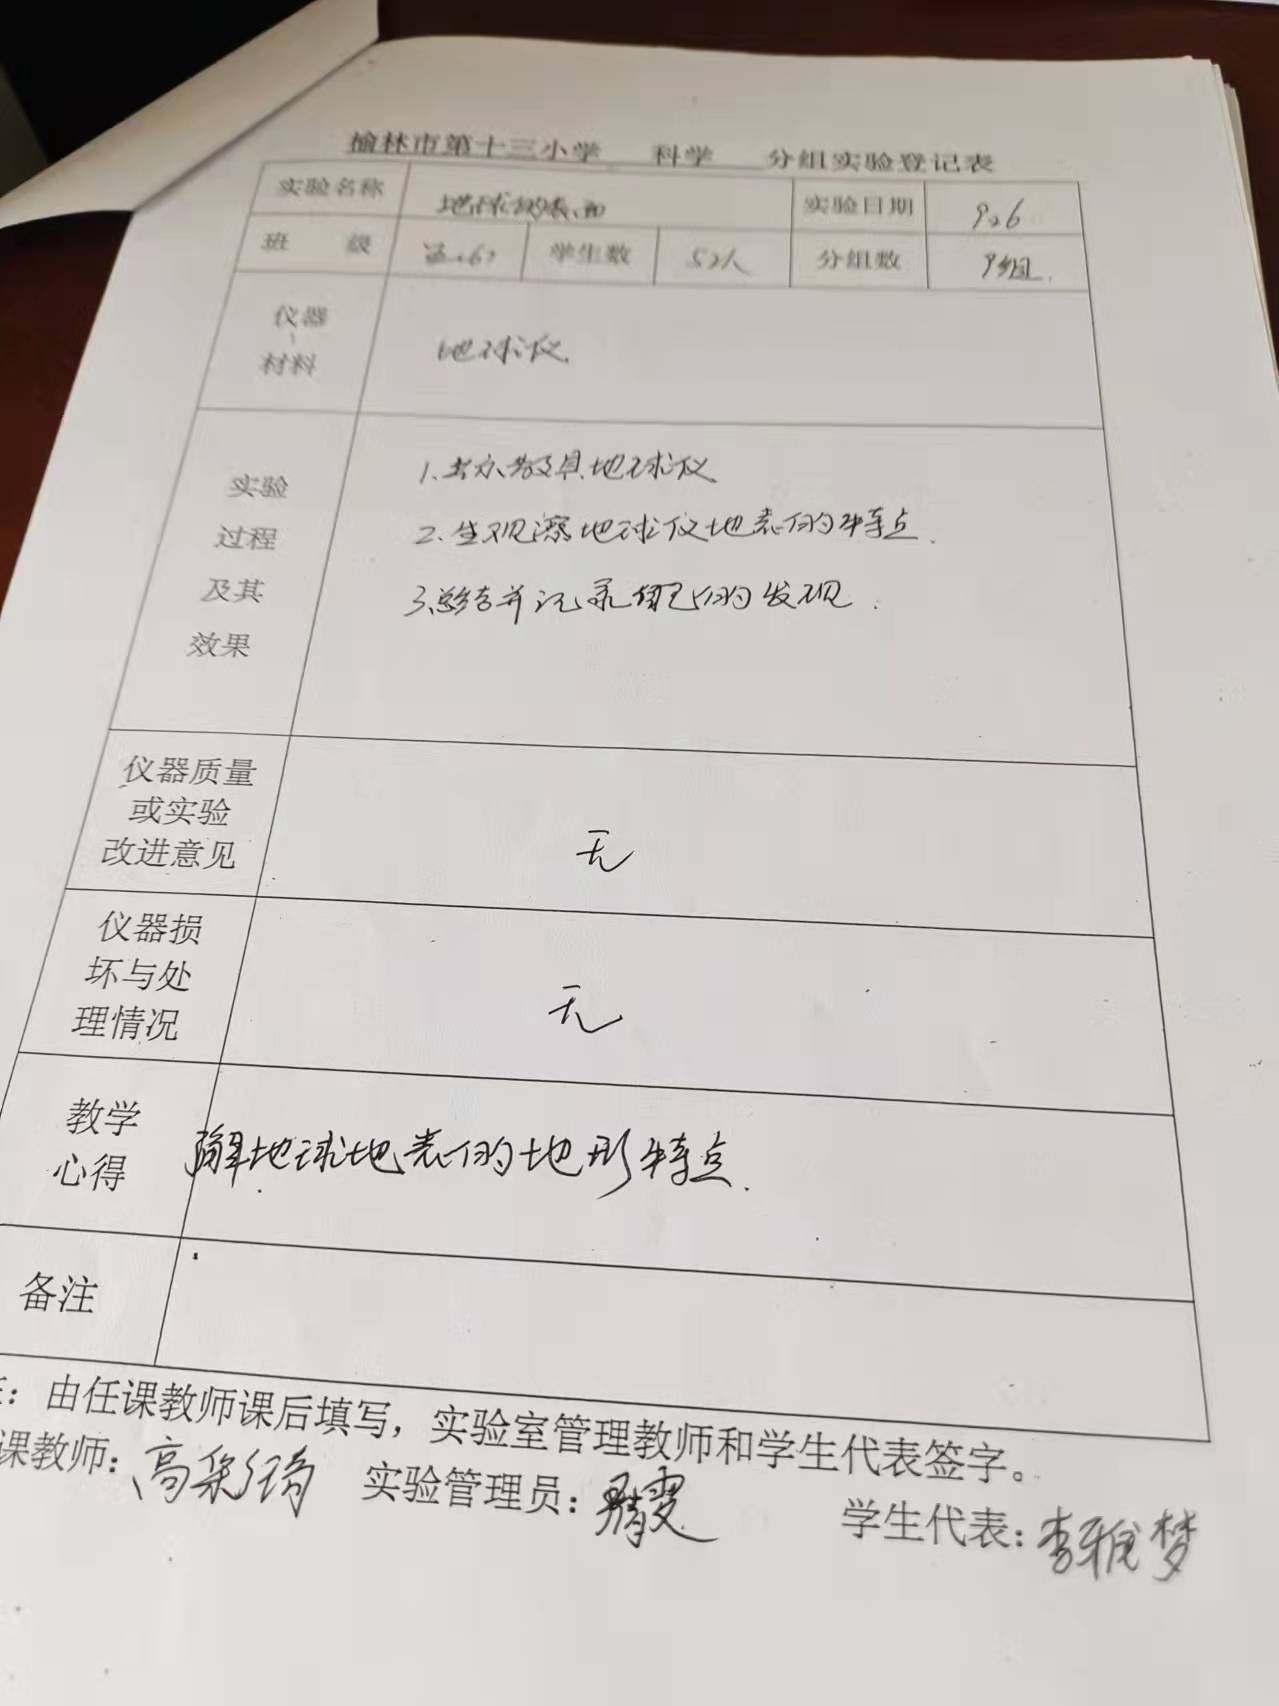 榆林市第十三小学 科学 分组实验登记表
实验名称 地球的表面 实验日期 9.26
班 级 学生数 52人 分组数 9组.
仪器、材料 地球仪.
实验过程及其效果
1.出示教具地球仪
2.生观察地球仪地表的特点.
3.总结并记录自己的发现.
仪器质量
或实验
改进意见
无
仪器损
坏与处
理情况
无
教学
心得
了解地球地表的地形特点.
备注
注：由任课教师课后填写，实验室管理教师和学生代表签字。
课教师：高 实验管理员： 学生代表：李雅梦